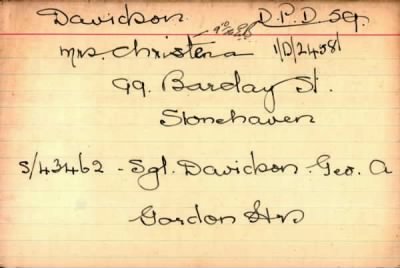 Davidson D.P.D 59.
Mrs. Christena 1/D/2458
99. Barclay St.
Stonehaven
S/43462 - Sgt. Davidson. Geo. A
Gordon Hrs